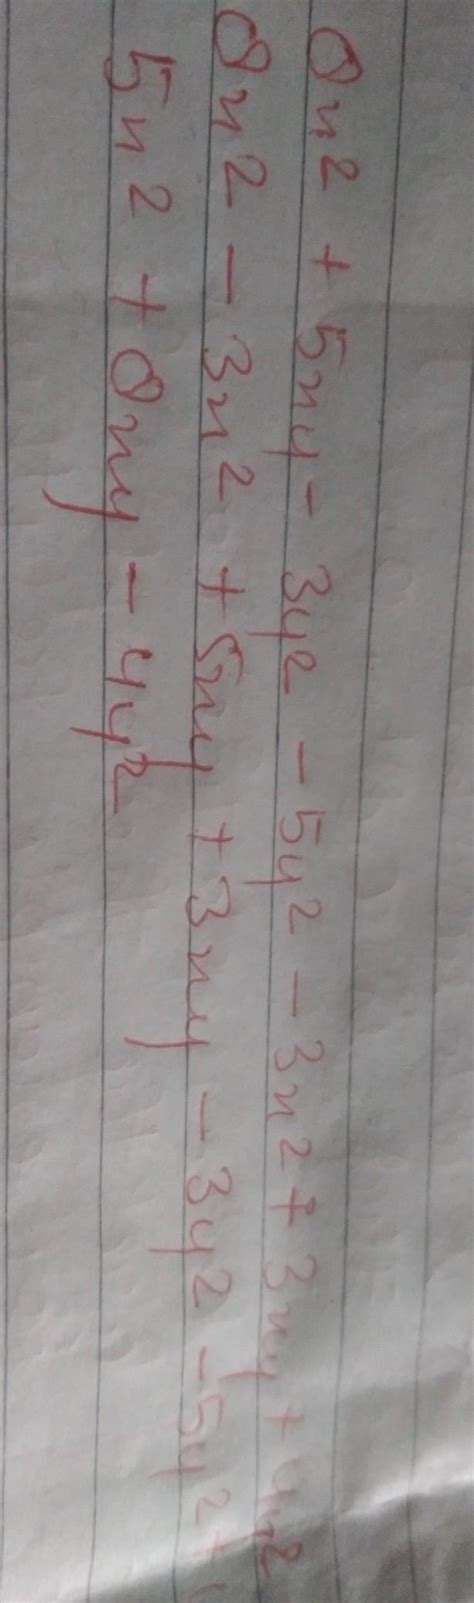 8x² + 5xy - 3y² - 5y² - 3x² + 3xy + 4y²
8x² - 3x² + 5xy + 3xy - 3y² - 5y² +
5x² + 8xy - 4y²